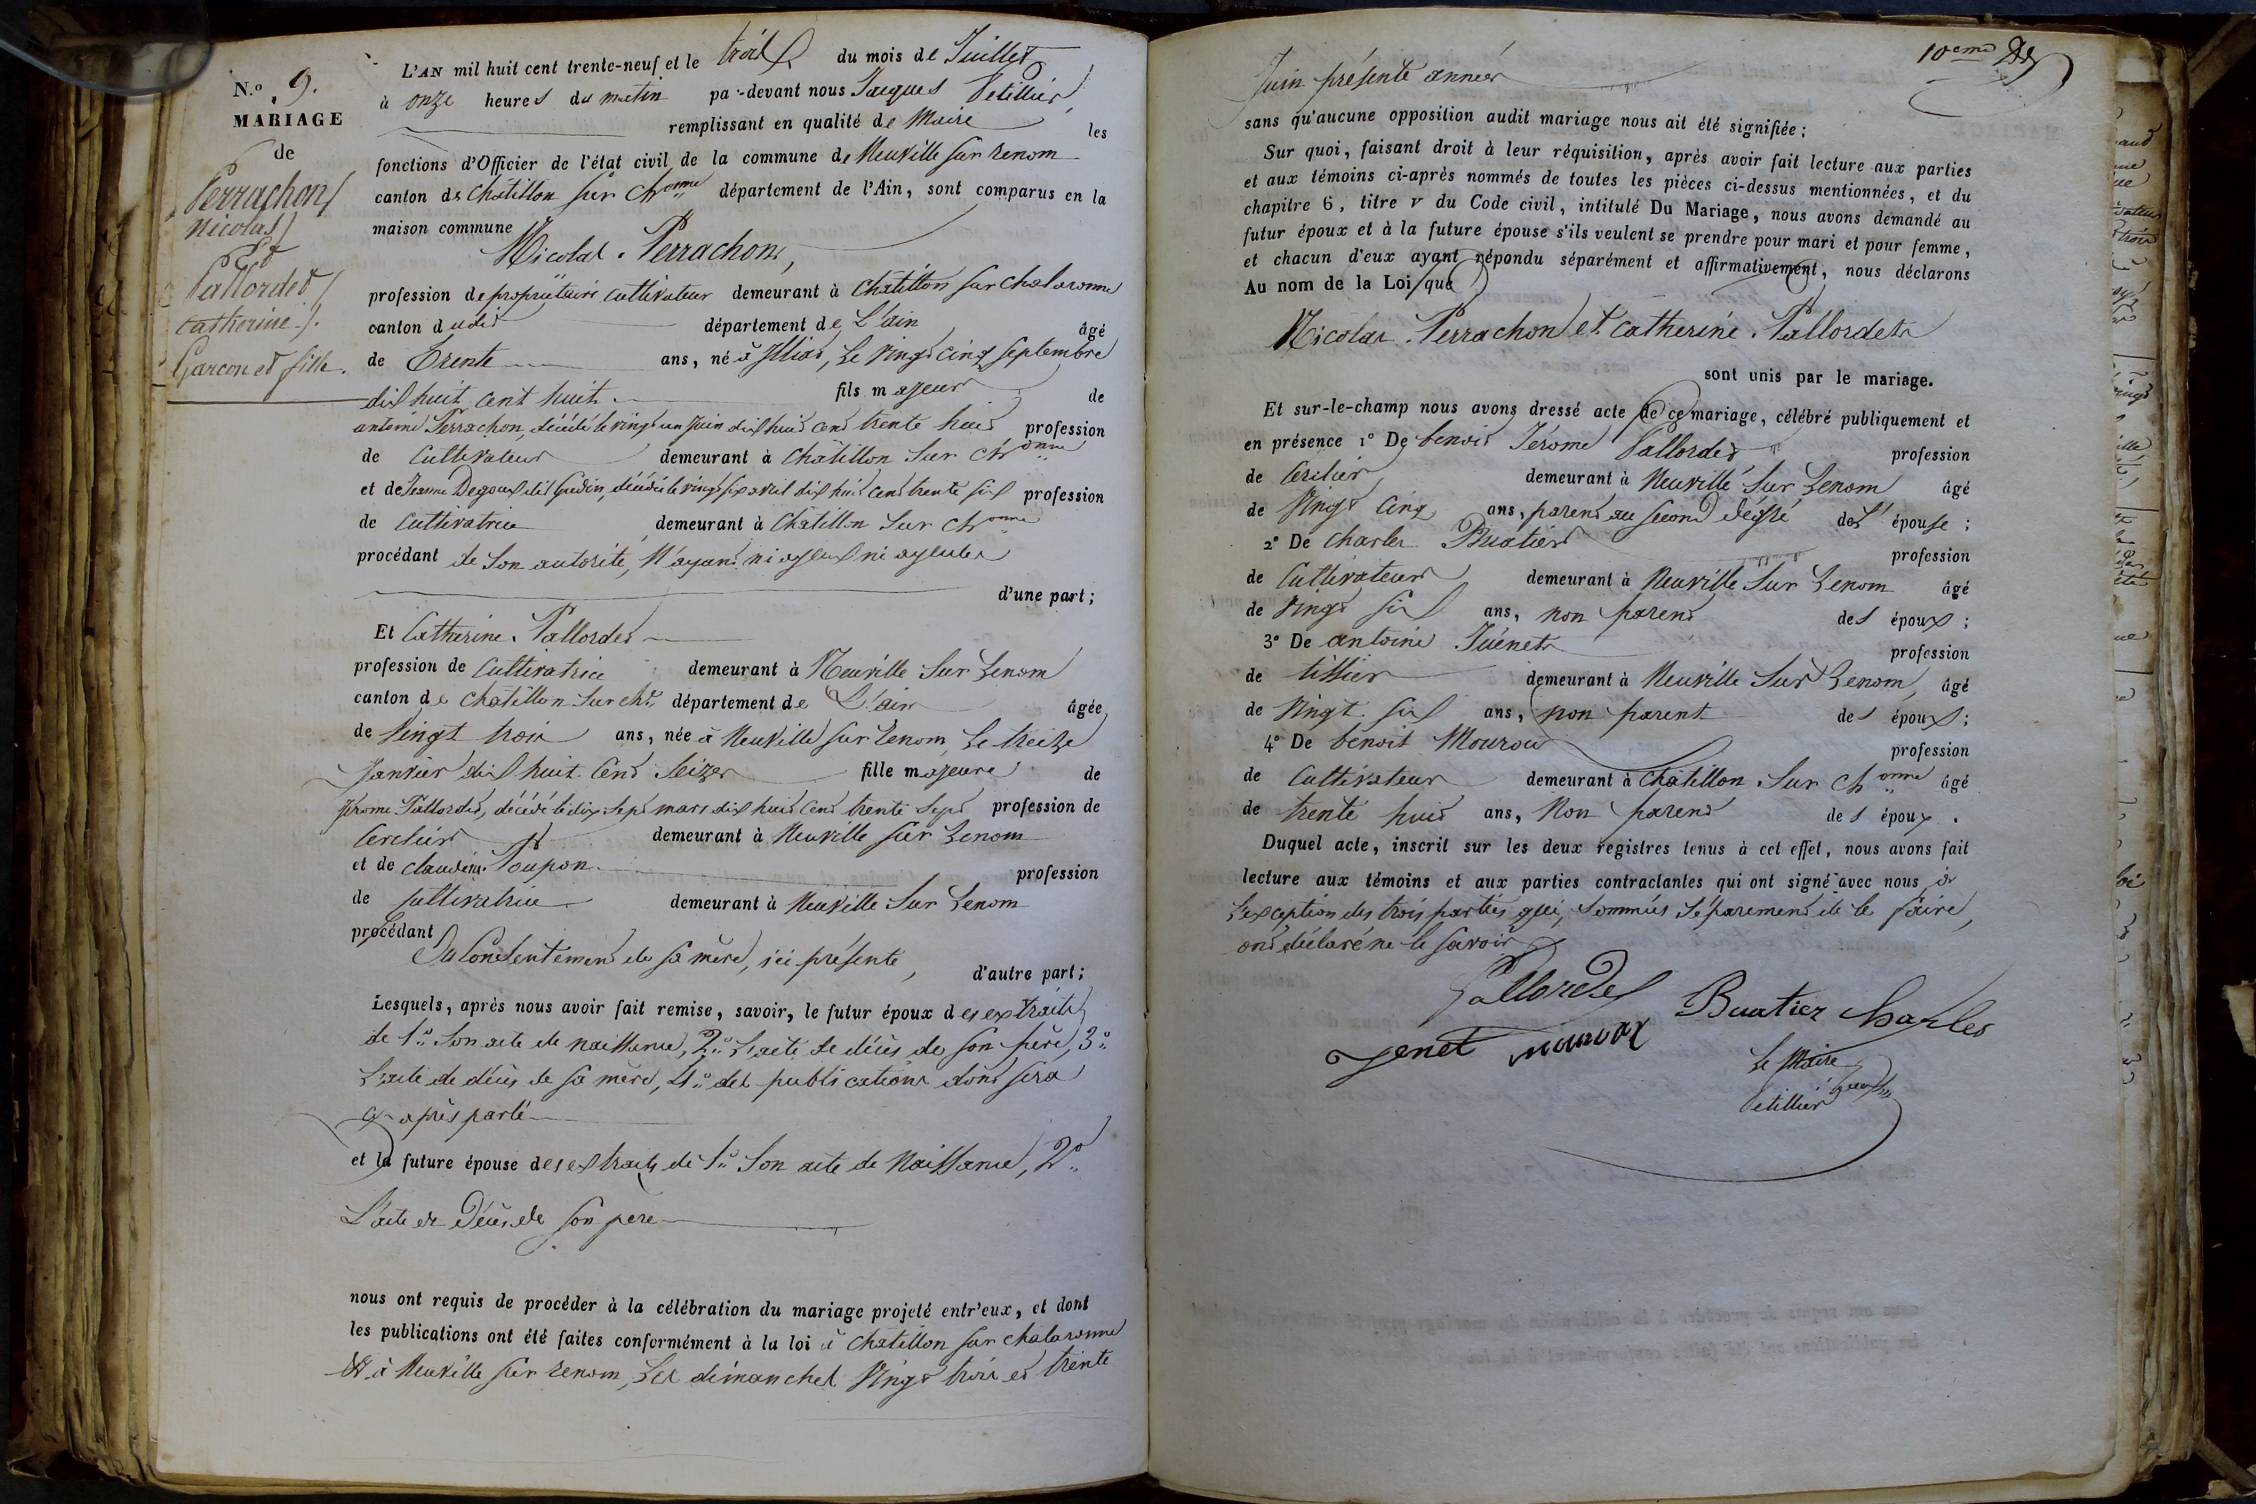 N.o 9.
MARIAGE
de
Perrachon
Nicolas
Et
Pallordet
Catherine.
Garcon et fille.
L'AN mil huit cent trente-neuf et le trois du mois de Juillet
à onze heures du matin par-devant nous Jacques Vetillier,
remplissant en qualité de Maire les
fonctions d'Officier de l'état civil de la commune de Neuville sur renom
canton de Châtillon sur Chonne département de l'Ain, sont comparus en la
maison commune
Nicolas Perrachon,
profession de propriétaire cultivateur demeurant à Châtillon sur chalaronne
canton dudit département de L'ain âgé
de trente ans, né à Illiat, le vingt cinq septembre
dix huit cent huit fils majeur de
antoine Perrachon, décédé le vingt un juin dix huit cent trente huit profession
de Cultivateur demeurant à Châtillon sur Chonne
et de Jeanne Degoux dit Gudin, décédée le vingt six avril dix huit cent trente six profession
de Cultivatrice demeurant à Châtillon sur chonne
procédant de son autorité, N'ayant ni ayeux ni ayeules
d'une part;
Et Catherine Pallordet
profession de Cultivatrice demeurant à Neuville sur Renom
canton de Châtillon sur chne département de L'ain âgée
de Vingt trois ans, née à Neuville sur renom, le treize
Janvier dix huit cent seize fille majeure de
Jérome Pallordet, décédé le dix sept mars dix huit cent trente sept profession de
Cerclier demeurant à Neuville sur Renom
et de claudine Poupon profession
de Cultivatrice demeurant à Neuville sur Renom
procédant
Du Consentement de sa mère, ici présente, d'autre part;
Lesquels, après nous avoir fait remise, savoir, le futur époux des extraits
de 1.o Son acte de naissance, 2.o L'acte de décès de son père, 3.o
L'acte de décès de sa mère, 4.o des publications dont sera
ci après parlé
et la future épouse des extraits de 1.o Son acte de Naissance, 2.o
L'acte de Décès de son père
nous ont requis de procéder à la célébration du mariage projeté entr'eux, et dont
les publications ont été faites conformément à la loi à Châtillon sur chalaronne
et à Neuville sur renom, Les dimanches Vingt trois et trente
10eme
Juin présente année
sans qu'aucune opposition audit mariage nous ait été signifiée;
Sur quoi, faisant droit à leur réquisition, après avoir fait lecture aux parties
et aux témoins ci-après nommés de toutes les pièces ci-dessus mentionnées, et du
chapitre 6, titre v du Code civil, intitulé Du Mariage, nous avons demandé au
futur époux et à la future épouse s'ils veulent se prendre pour mari et pour femme,
et chacun d'eux ayant répondu séparément et affirmativement, nous déclarons
Au nom de la Loi que
Nicolas Perrachon et Catherine Pallordet
sont unis par le mariage.
Et sur-le-champ nous avons dressé acte de ce mariage, célébré publiquement et
en présence 1° De benoit Jérome Pallordet profession
de Cerclier demeurant à Neuville sur Renom âgé
de Vingt cinq ans, parent au second dégré de L' épouse;
2° De Charles Buatier profession
de Cultivateur demeurant à Neuville sur Renom âgé
de Vingt six ans, non parent des époux;
3° De antoine Juenet profession
de tissier demeurant à Neuville sur Renom, âgé
de Vingt six ans, non parent des époux;
4° De benoit Mouroux profession
de Cultivateur demeurant à Châtillon sur Chonne âgé
de trente huit ans, Non parent des époux.
Duquel acte, inscrit sur les deux registres tenus à cet effet, nous avons fait
lecture aux témoins et aux parties contractantes qui ont signé avec nous à
L'exception des trois parties qui, sommées séparement de le faire,
ont déclaré ne le savoir
Pallordet
Buatier Charles
Jenet mouroux
Le Maire
Vetillier